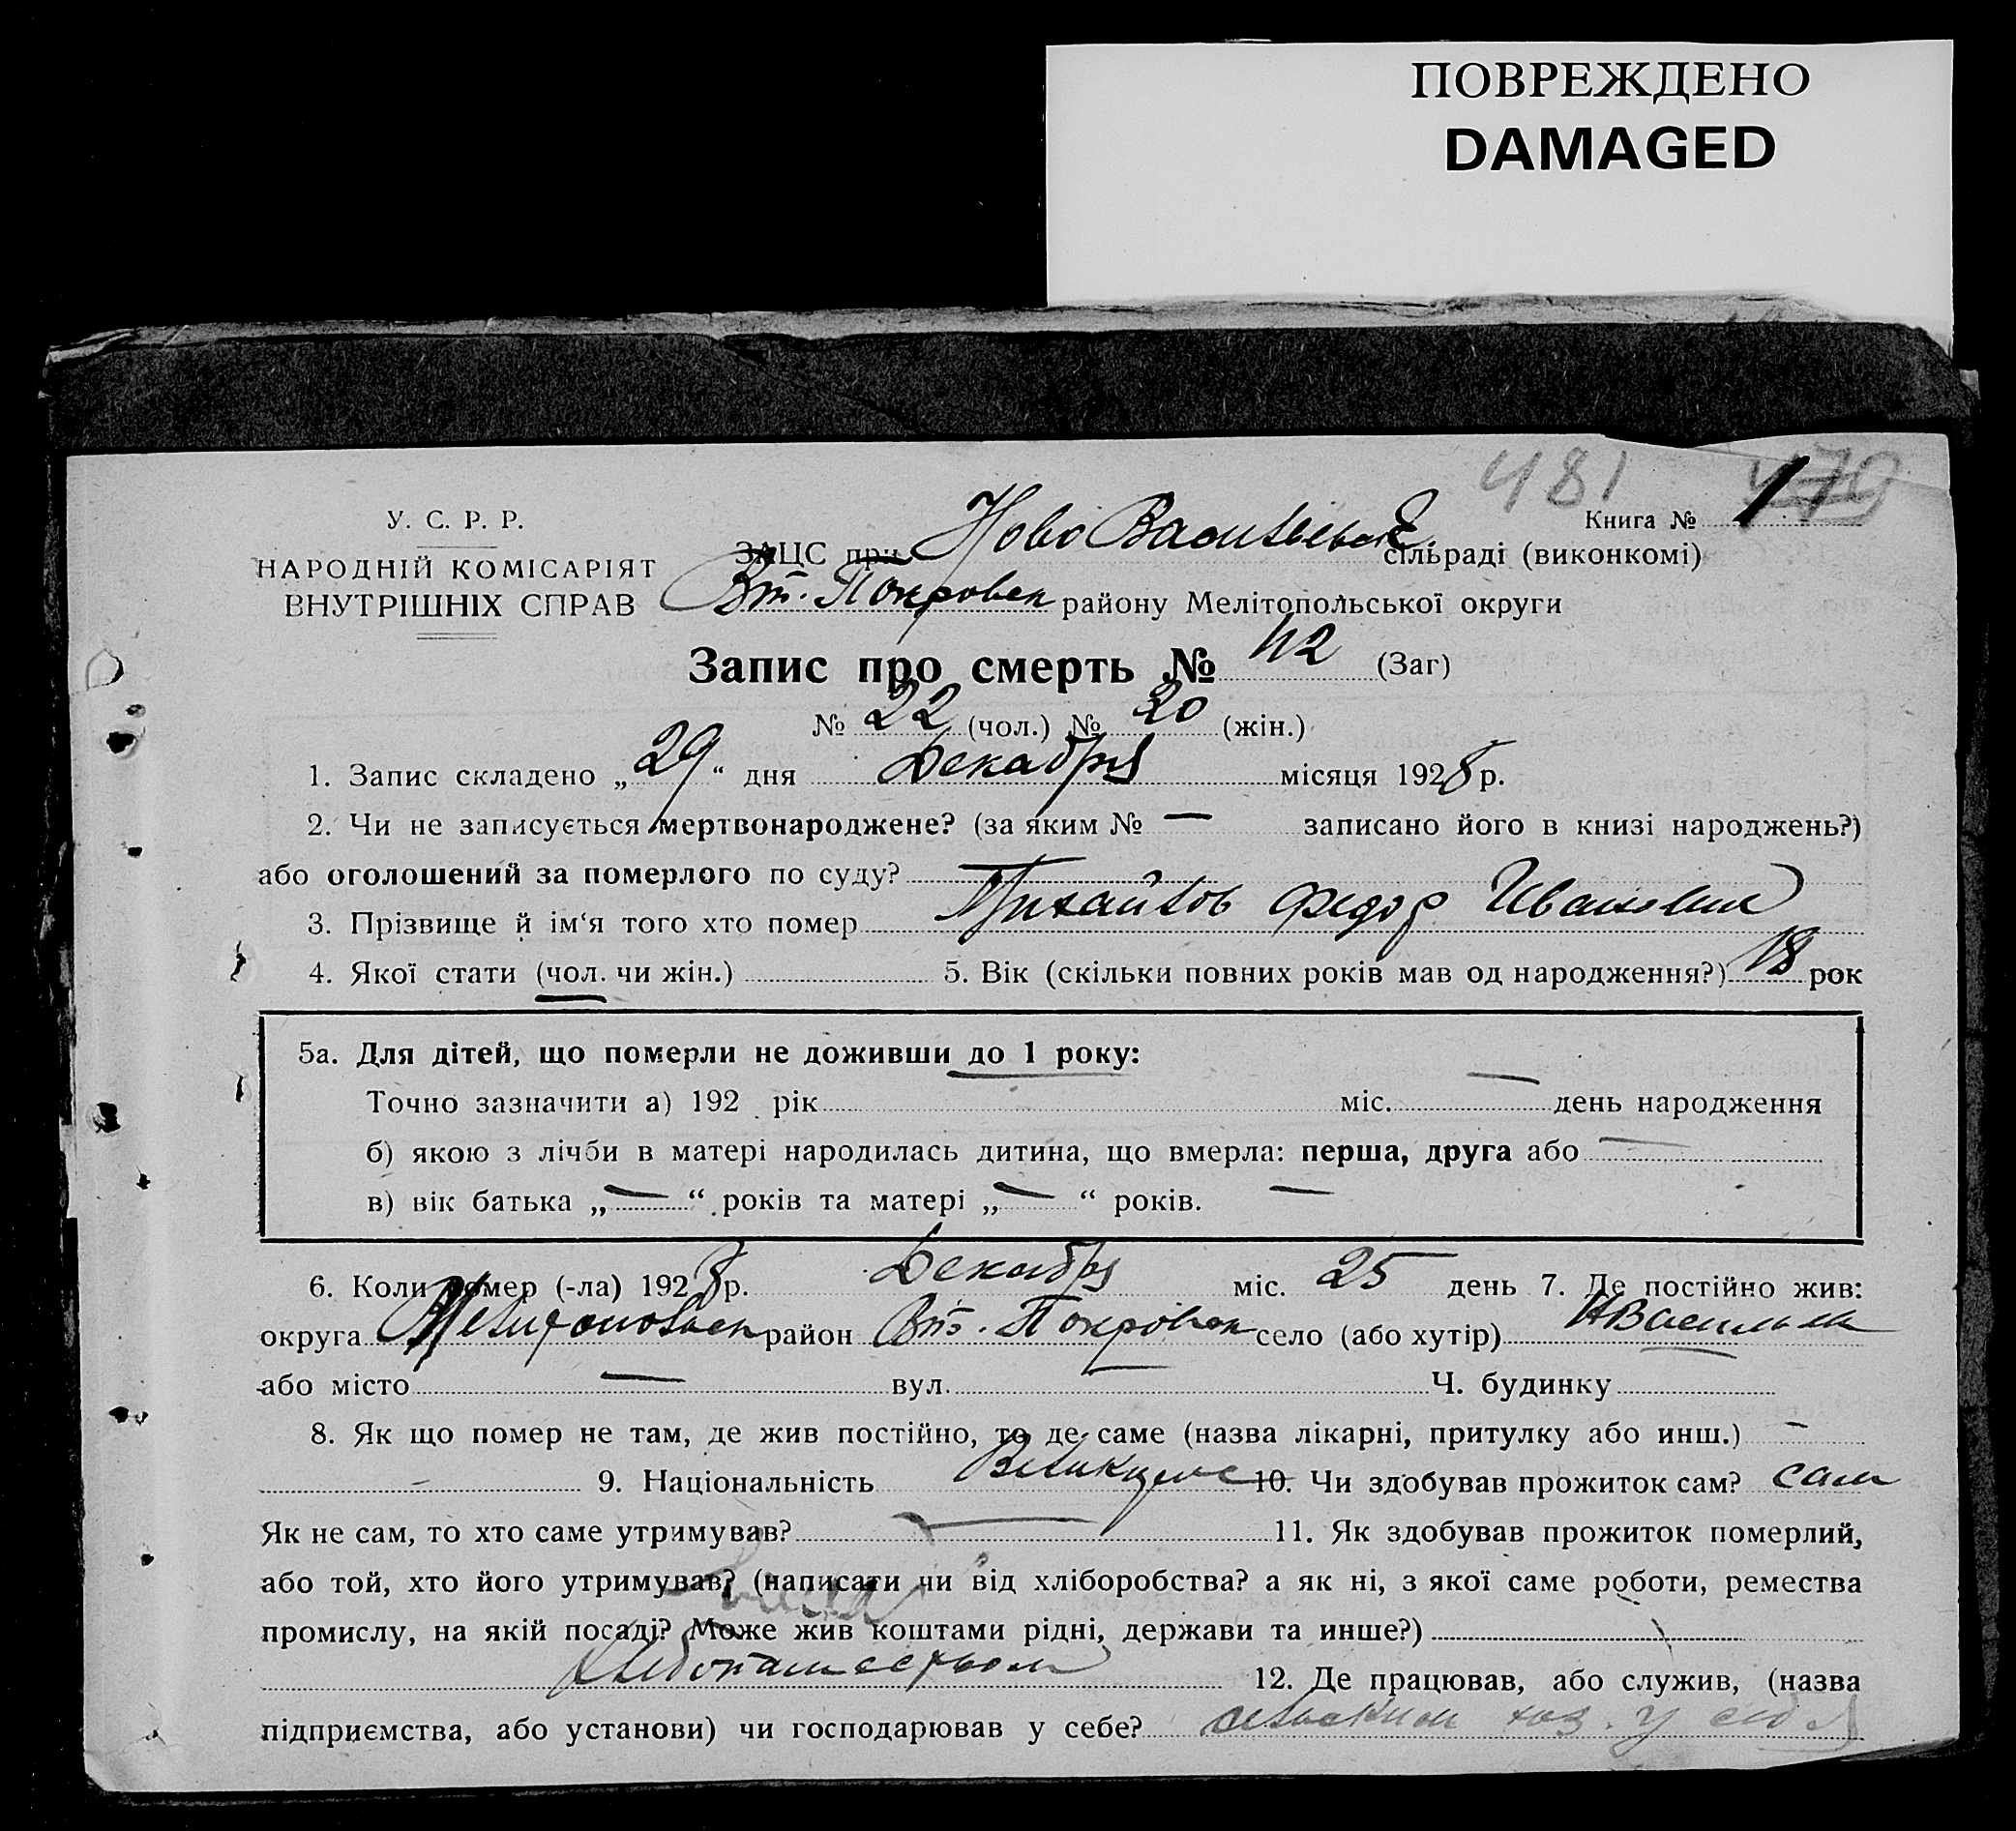 ПОВРЕЖДЕНО
DAMAGED
481 470
У. С. Р. Р.
Книга № 1
НАРОДНІЙ КОМІСАРІЯТ
ВНУТРІШНІХ СПРАВ
ЗАЦС при Ново Васильевск сільраді (виконкомі)
Вт. Покровск району Мелітопольської округи
Запис про смерть № 42 (Заг)
№ 22 (чол.) № 20 (жін.)
1. Запис складено „29“ дня Декабря місяця 1928 р.
2. Чи не записується мертвонароджене? (за яким № — записано його в книзі народжень?)
або оголошений за померлого по суду? —
3. Прізвище й ім‘я того хто помер Федор Иванович
4. Якої стати (чол. чи жін.) 5. Вік (скільки повних років мав од народження?) 18 рок
5а. Для дітей, що померли не доживши до 1 року:
Точно зазначити а) 192 рік міс. — день народження
б) якою з лічби в матері народилась дитина, що вмерла: перша, друга або —
в) вік батька „—“ років та матері „—“ років. —
6. Коли помер (-ла) 1928 р. Декабря міс. 25 день 7. Де постійно жив:
округа район Вто. Покровск село (або хутір) НВасильевк
або місто — вул. — Ч. будинку
8. Як що помер не там, де жив постійно, то де саме (назва лікарні, притулку або инш.) —
— 9. Національність 10. Чи здобував прожиток сам? сам
Як не сам, то хто саме утримував? — 11. Як здобував прожиток померлий,
або той, хто його утримував? (написати чи від хліборобства? а як ні, з якої саме роботи, ремества
промислу, на якій посаді? Може жив коштами рідні, держави та инше?)
хлебопашеством 12. Де працював, або служив, (назва
підприємства, або установи) чи господарював у себе? сельским хоз. у себя